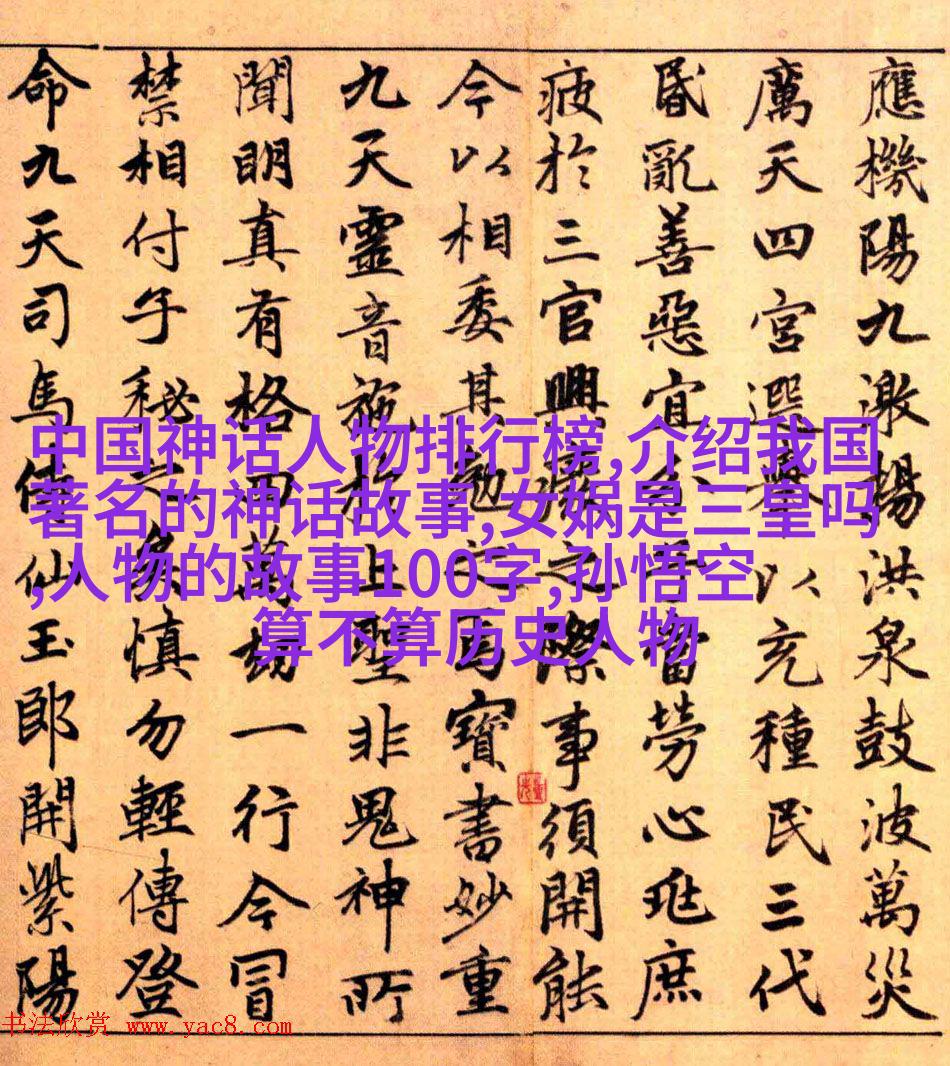 應機陽九激揚洪泉鼓波萬災
厲天四宮選舉以充種民三代
昏亂善惡宜分予當勞心庶
疲於三官興廢之際事須開能
今以相委其勉之焉寶書妙重
九天靈音施於上聖非鬼神所
聞明真有格而萬劫一行今冒
禁相付子秘之矣慎勿輕傳登
命九天司馬侍仙玉郎開紫陽
中国神话人物排行榜,介绍我国
著名的神话故事,女娲是三皇吗
,人物的故事100字,孙悟空
算不算历史人物
书法欣赏 www.yac8.com